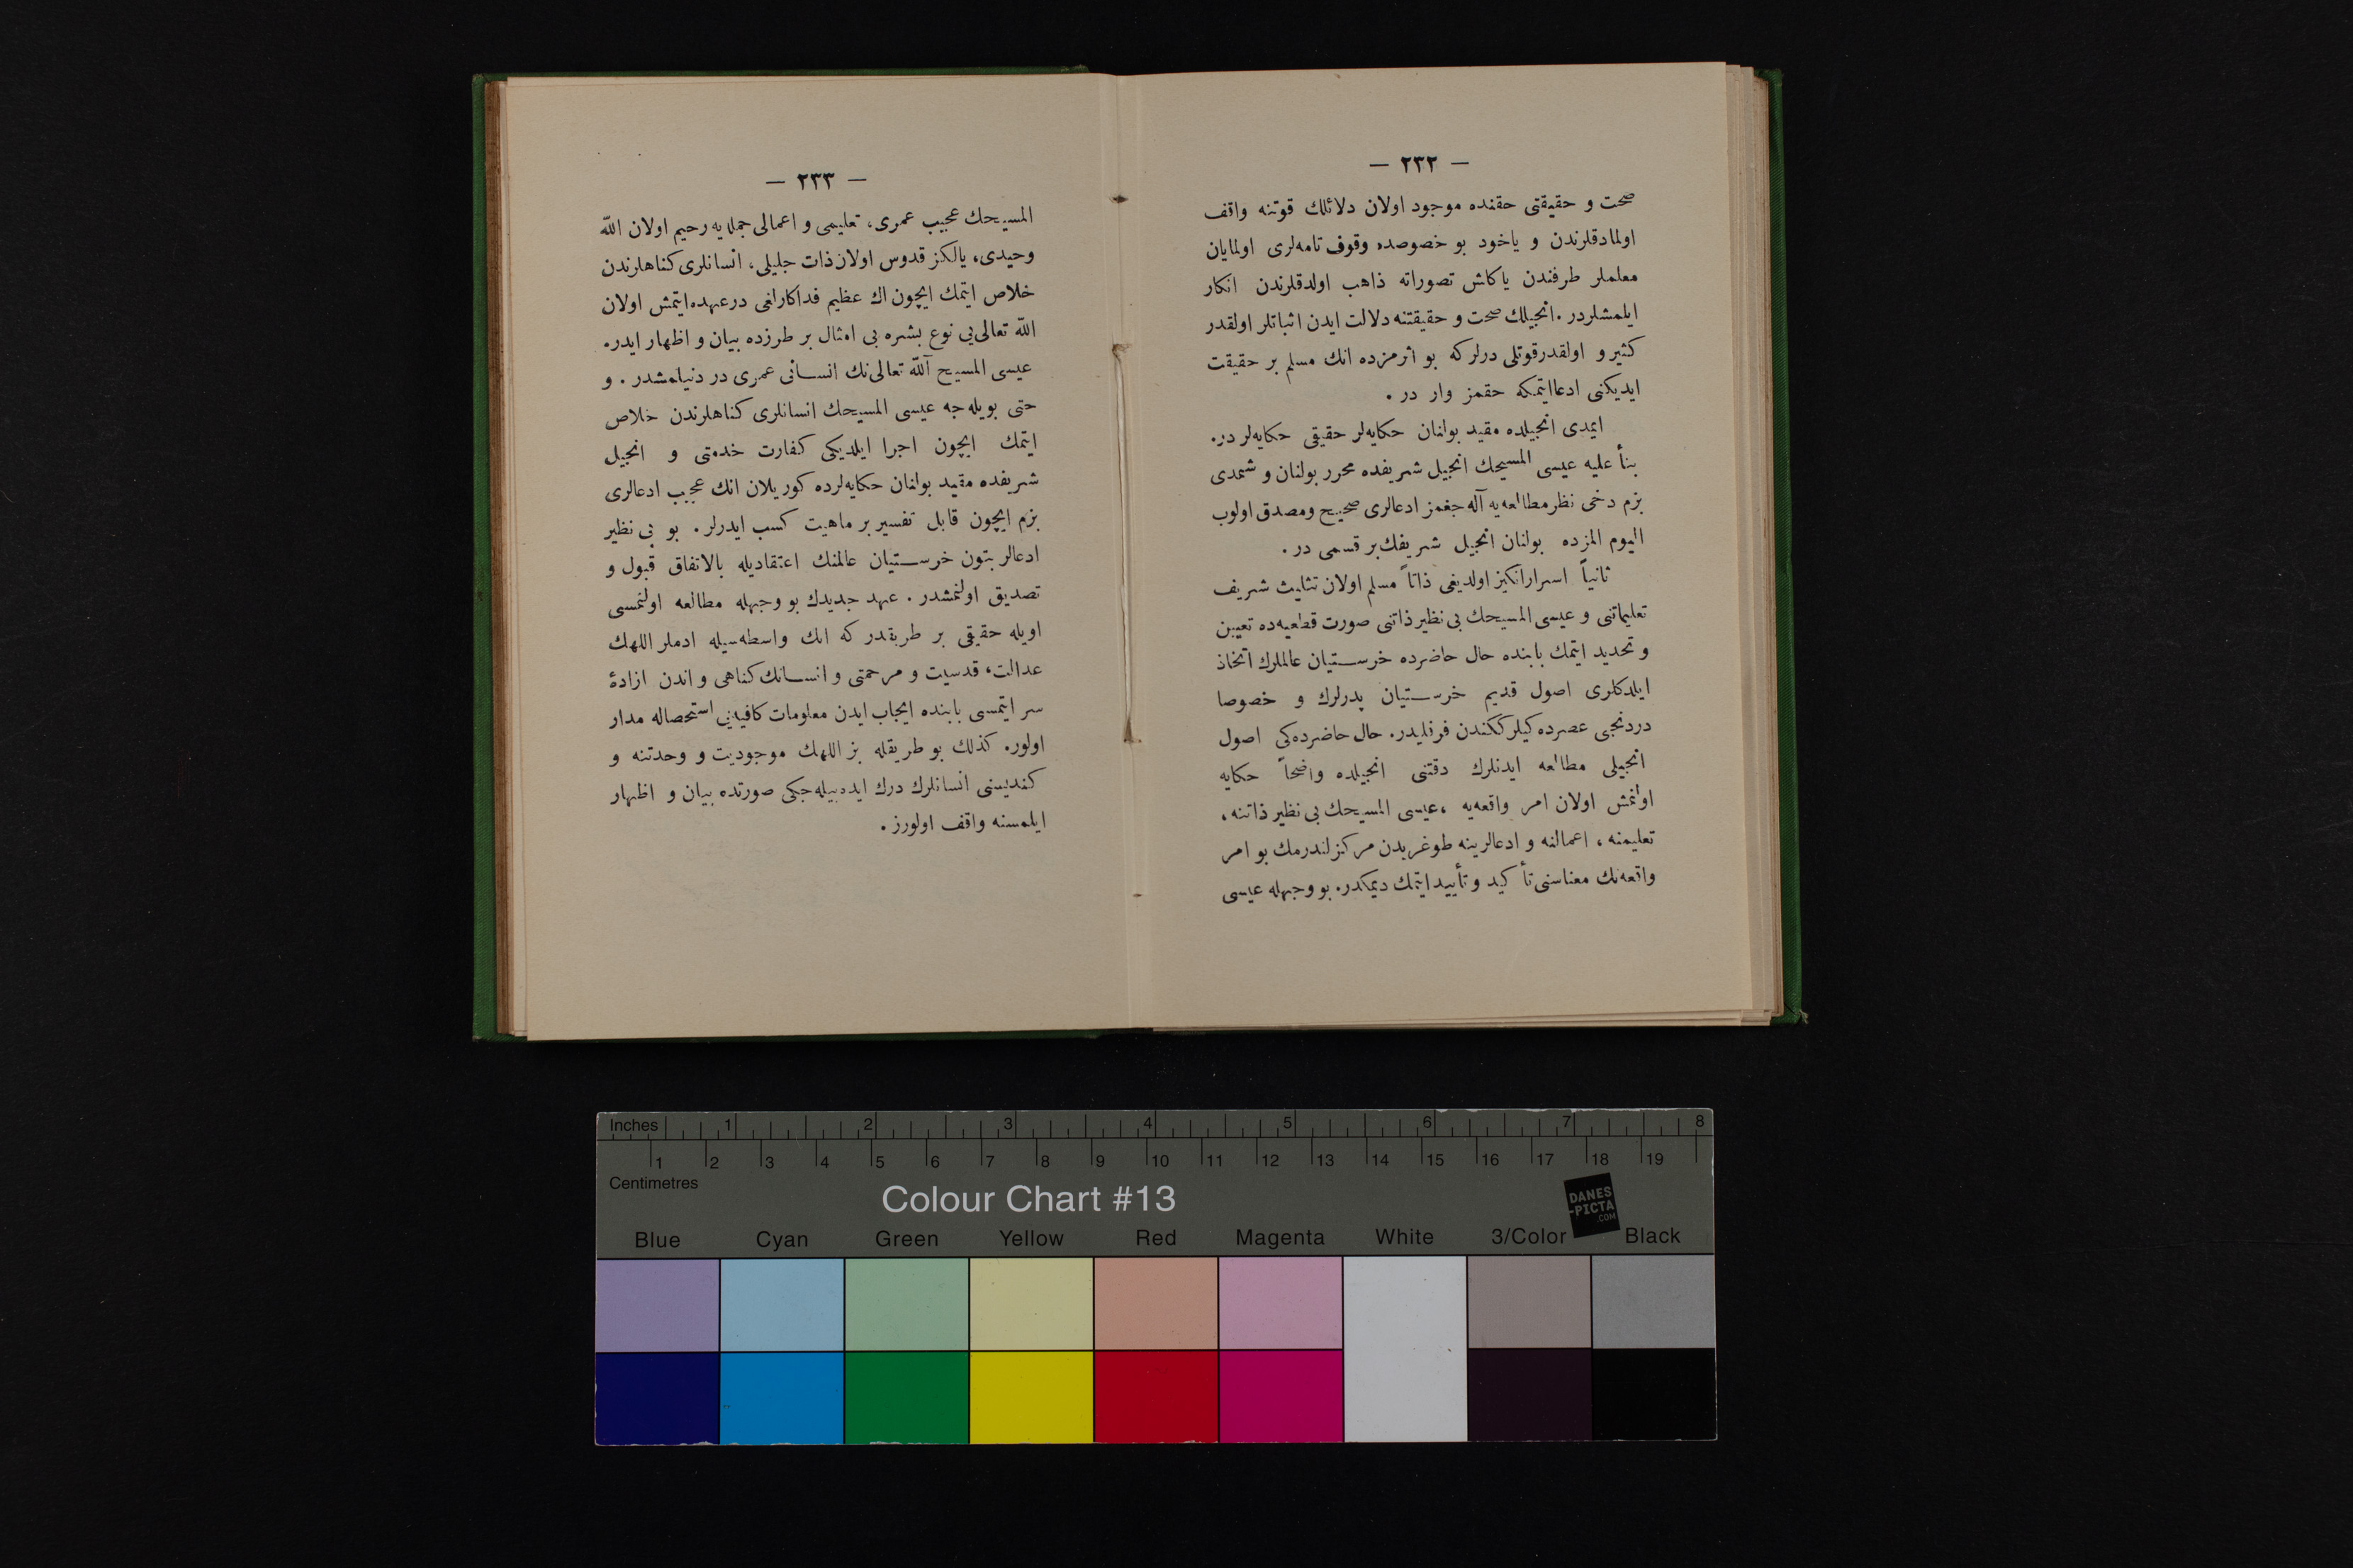 — ٢٣٢ —
صحت و حقیقتی حقنده موجود اولان دلائلك قوتنه واقف
اولمادقلرندن و یاخود بو خصوصده وقوف تامه‌لری اولمایان
معلملر طرفندن یاكاش تصوراته ذاهب اولدقلرندن انكار
ایلمشلردر. انجیلك صحت و حقیقتنه دلالت ایدن اثباتلر اولقدر
كثیر و اولقدر قوتلی درلر كه بو اثرمزده انك مسلم بر حقیقت
ایدیكنی ادعا ایتمكه حقمز وار در.
ایمدی انجیلده مقید بولنان حكایه‌لر حقیقی حكایه‌لر در.
بنأ علیه عیسی المسیحك انجیل شریفده محرر بولنان و شمدی
بزم دخی نظر مطالعه‌یه آله‌جغمز ادعالری صحیح ومصدق اولوب
الیوم المزده بولنان انجیل شریفك بر قسمی در.
ثانیاً اسرارانكیز اولدیغی ذاتاً مسلم اولان تثلیث شریف
تعلیماتنی و عیسی المسیحك بی نظیر ذاتنی صورت قطعیه‌ده تعیین
و تحدید ایتمك بابنده حال حاضرده خرستیان عالملرك اتخاذ
ایلدكلری اصول قدیم خرستیان پدرلرك و خصوصا
دردنجی عصرده كیلرككندن فرقلیدر. حال حاضرده كی اصول
انجیلی مطالعه ایدنلرك دقتنی انجیلده واضحاً حكایه
اولنمش اولان امر واقعه‌یه ، عیسی المسیحك بی نظیر ذاتنه ،
تعلیمنه ، اعمالنه و ادعالرینه طوغریدن مركزلندرمك بو امر
واقعه‌نك معناسنی تأكید و تأیید ایتمك دیمكدر. بو وجهله عیسی
— ٢٣٣ —
المسیحك عجیب عمری، تعلیمی و اعمالی جمله‌یه رحیم اولان اللّٰه
وحیدی، یالكز قدوس اولان ذات جلیلی، انسانلری كناهلرندن
خلاص ایتمك ایچون اك عظیم فداكارلغی درعهده ایتمش اولان
اللّٰه تعالی‌یی نوع بشره بی امثال بر طرزده بیان و اظهار ایدر.
عیسی المسیح آللّٰه تعالی‌نك انسانی عمری در دنیلمشدر. و
حتی بویله‌جه عیسی المسیحك انسانلری كناهلرندن خلاص
ایتمك ایچون اجرا ایلدیكی كفارت خدمتی و انجیل
شریفده مقید بولنان حكایه‌لرده كوریلان انك عجیب ادعالری
بزم ایچون قابل تفسیر بر ماهیت كسب ایدرلر. بو بی نظیر
ادعالر بتون خرستیان عالمنك اعتقادیله بالاتفاق قبول و
تصدیق اولنمشدر. عهد جدیدك بو وجهله مطالعه اولنمسی
اویله حقیقی بر طریقدر كه انك واسطه‌سیله ادملر اللهك
عدالت، قدسیت و مرحمتی و انسانك كناهی و اندن ازادهٔ
سر ایتمسی بابنده ایجاب ایدن معلومات كافیه‌یی استحصاله مدار
اولور. كذلك بو طریقله بز اللهك موجودیت و وحدتنه و
كندیسنی انسانلرك درك ایده‌بیله‌جكی صورتده بیان و اظهار
ایلمسنه واقف اولورز.
Inches 1 2 3 4 5 6 7 8
1 2 3 4 5 6 7 8 9 10 11 12 13 14 15 16 17 18 19
Centimetres
Colour Chart #13
DANES
-PICTA
.COM
Blue Cyan Green Yellow Red Magenta White 3/Color Black